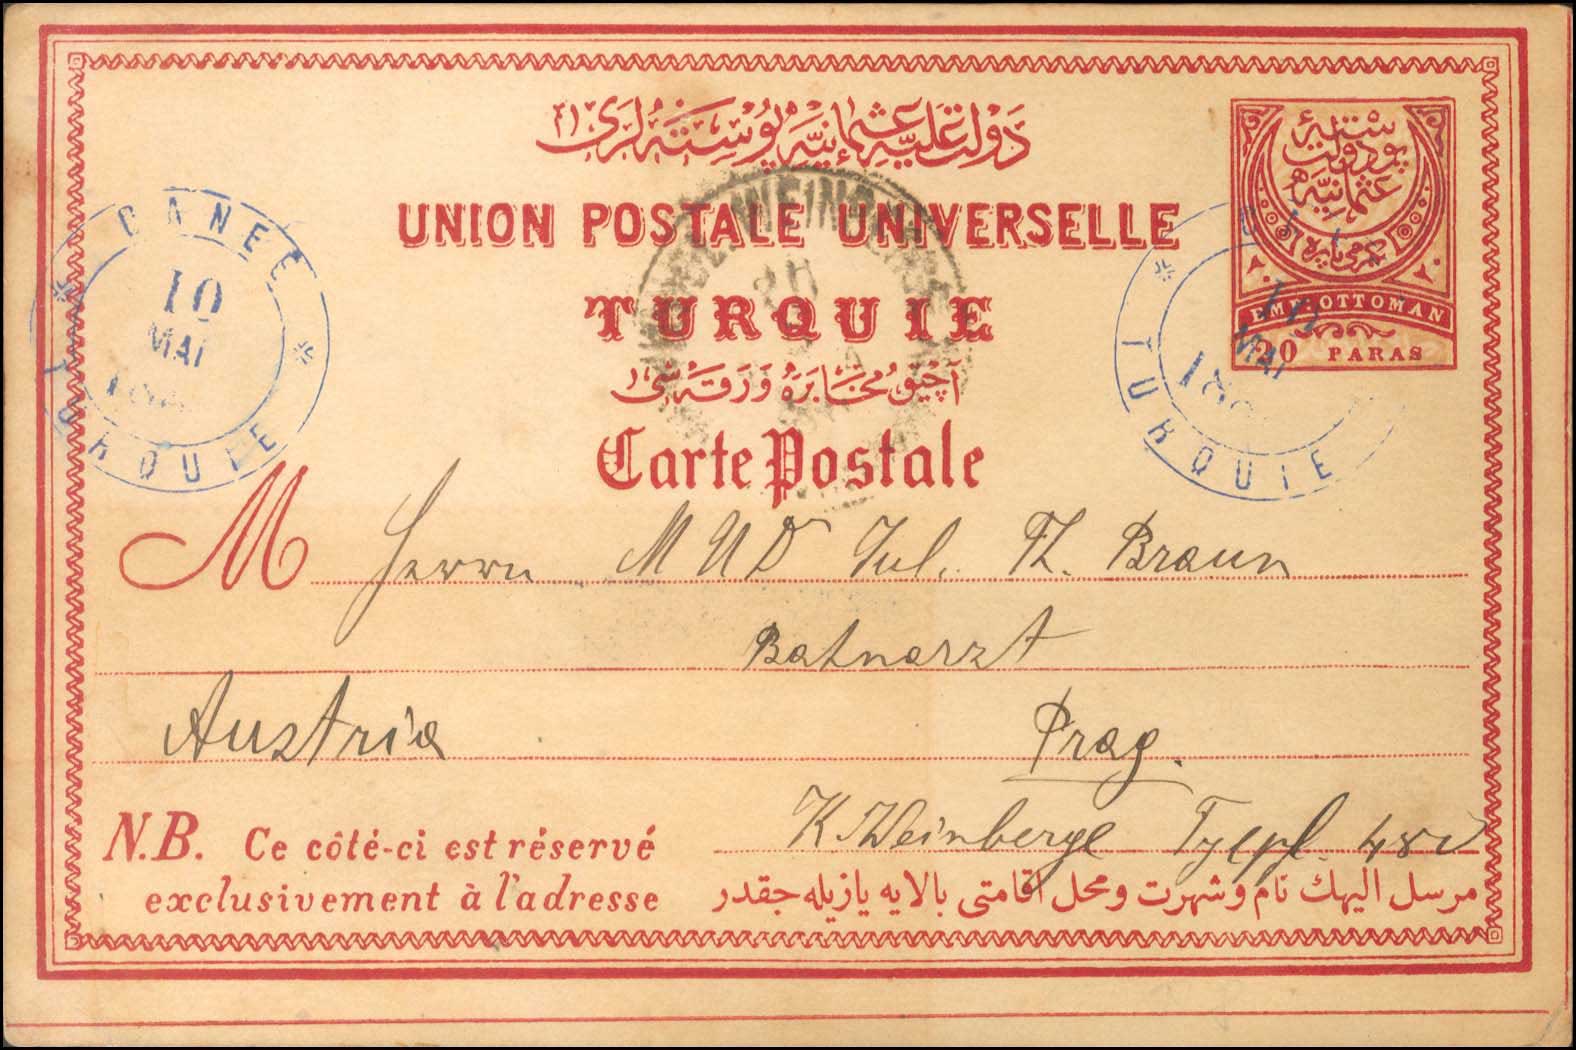 دولت علیۀ عثمانیه پوسته لری
UNION POSTALE UNIVERSELLE
TURQUIE
آچیق مخابره ورقه سی
Carte Postale
پوستۀ دولت عثمانیه
یکرمی پاره
EMP. OTTOMAN
20 PARAS
CANEE
10
MAI
TURQUIE
10
MAI
TURQUIE
M Herrn MUD Jul. Th. Braun
Bahnarzt
Austria Prag.
K. Weinberge
N.B. Ce côté-ci est réservé
exclusivement à l'adresse
مرسل الیهك نام و شهرت و محل اقامتی بالایه یازیله جقدر